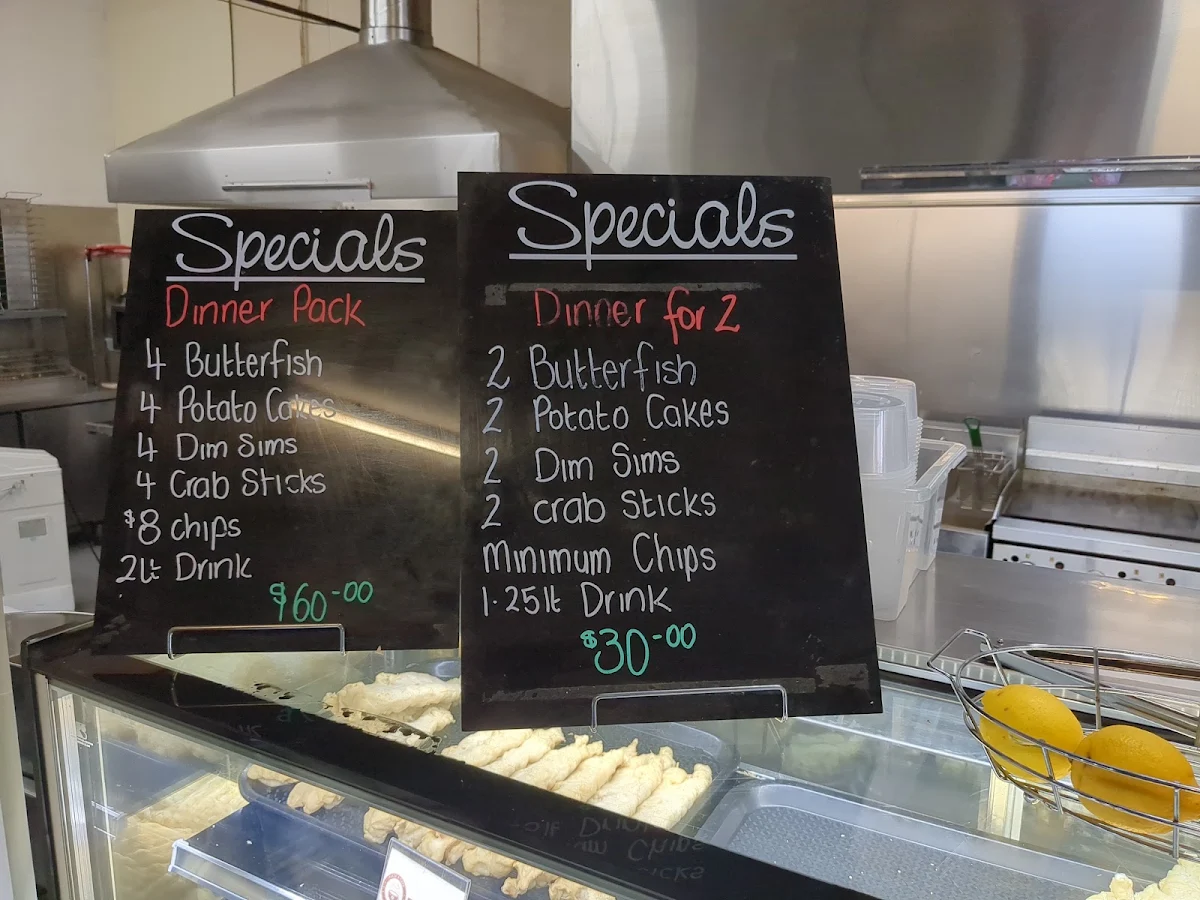 Specials
Dinner Pack
4 Butterfish
4 Potato Cakes
4 Dim Sims
4 Crab Sticks
$8 chips
2Lt Drink
$60-00
Specials
Dinner for 2
2 Butterfish
2 Potato Cakes
2 Dim Sims
2 crab Sticks
Minimum Chips
1.25lt Drink
$30-00